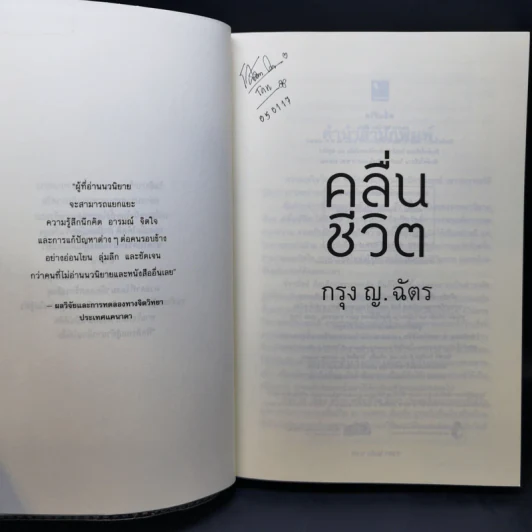 "ผู้ที่อ่านนวนิยาย
จะสามารถแยกแยะ
ความรู้สึกนึกคิด อารมณ์ จิตใจ
และการแก้ปัญหาต่าง ๆ ต่อคนรอบข้าง
อย่างอ่อนโยน ลุ่มลึก และชัดเจน
กว่าคนที่ไม่อ่านนวนิยายและหนังสืออื่นเลย"
— ผลวิจัยและการทดลองทางจิตวิทยา
ประเทศแคนาดา
050117
คลื่น
ชีวิต
กรุง ญ. ฉัตร